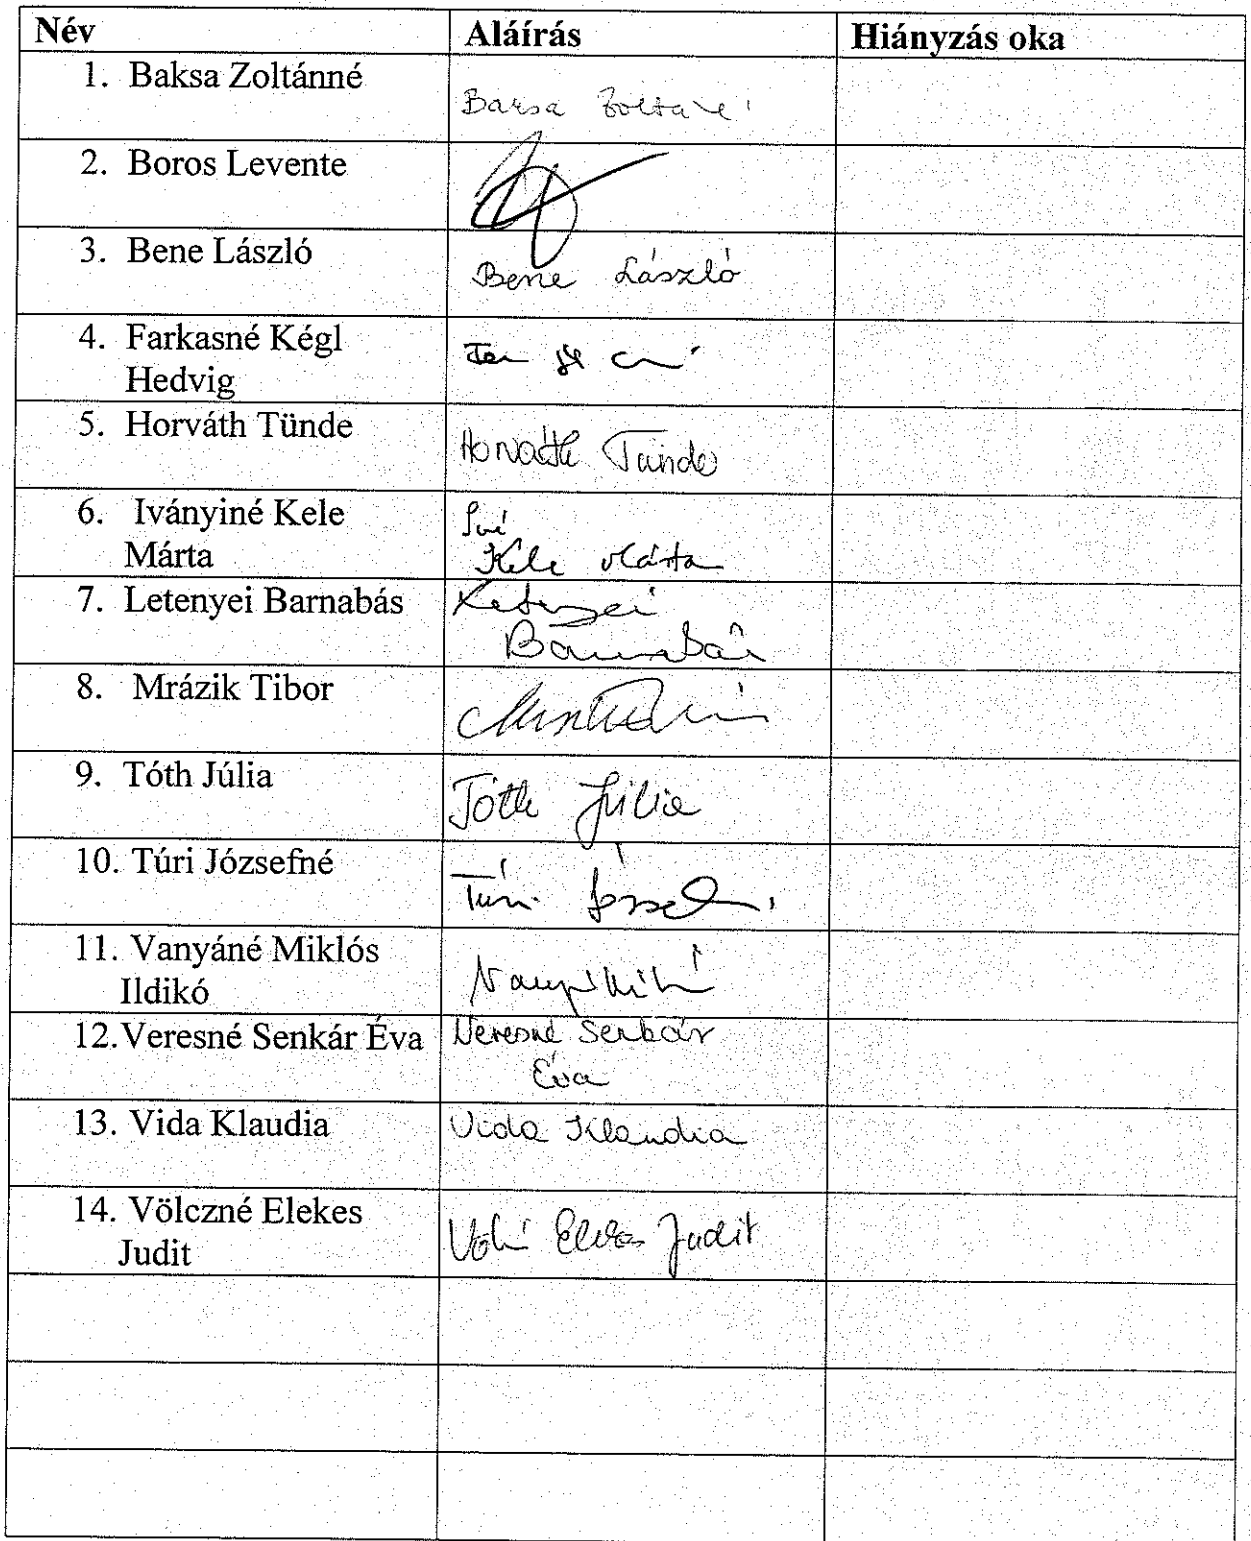 Név Aláírás Hiányzás oka
1. Baksa Zoltánné
Baksa Zoltáné
2. Boros Levente
3. Bene László
Bene László
4. Farkasné Kégl
Hedvig
5. Horváth Tünde
Horváth Tünde
6. Iványiné Kele
Márta
Iné
Kele Márta
7. Letenyei Barnabás
Letenyei
Barnabás
8. Mrázik Tibor
9. Tóth Júlia
Tóth Júlia
10. Túri Józsefné
Túri
11. Vanyáné Miklós
Ildikó
12. Veresné Senkár Éva
Veresné Senkár
Éva
13. Vida Klaudia
Vida Klaudia
14. Völczné Elekes
Judit
Elekes Judit